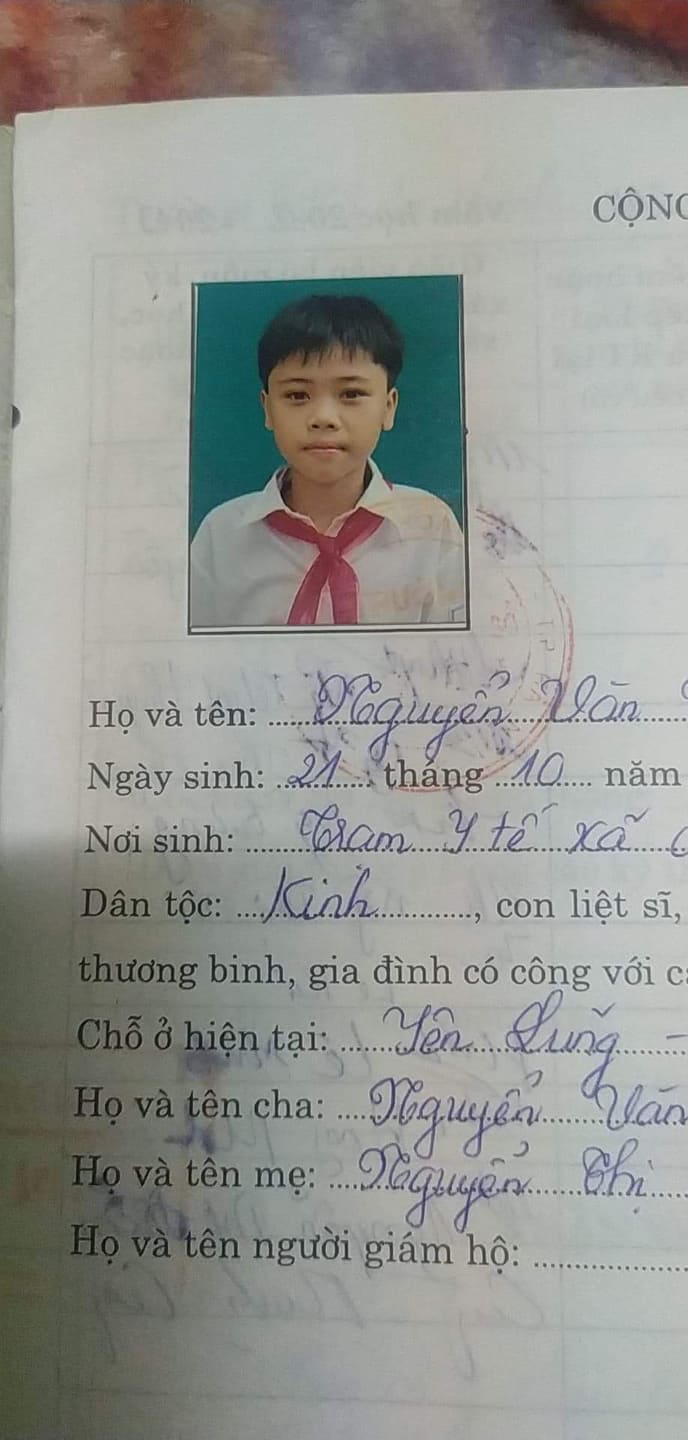 CỘNG
Họ và tên: Nguyễn Văn
Ngày sinh: 21 tháng 10 năm
Nơi sinh: Trạm Y tế xã
Dân tộc: Kinh, con liệt sĩ,
thương binh, gia đình có công với
Chỗ ở hiện tại: Yên Lũng -
Họ và tên cha: Nguyễn Văn
Họ và tên mẹ: Nguyễn Thị
Họ và tên người giám hộ: